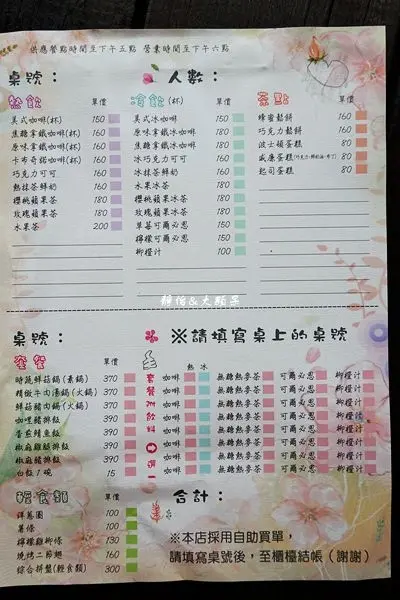 供應餐點時間至下午五點 營業時間至下午六點
桌號： 人數：
熱飲 單價
美式咖啡(杯) 150
焦糖拿鐵咖啡(杯) 180
原味拿鐵咖啡(杯) 160
卡布奇諾咖啡(杯) 160
巧克力可可 160
熱抹茶鮮奶 160
櫻桃蘋果茶 180
玫瑰蘋果茶 180
水果茶 200
冷飲(杯) 單價
美式冰咖啡 150
原味拿鐵冰咖啡 160
焦糖拿鐵冰咖啡 180
冰巧克力可可 160
冰抹茶鮮奶 160
水果冰茶 180
櫻桃蘋果冰茶 180
玫瑰蘋果冰茶 180
草莓可爾必思 150
檸檬可爾必思 150
柳橙汁 100
茶點 單價
蜂蜜鬆餅 160
巧克力鬆餅 160
波士頓蛋糕 80
威廉蛋糕 80
起司蛋糕 80
靜怡&大顆呆
桌號： ※請填寫桌上的桌號
套餐 單價 套餐附飲料 選一 熱 冰
時蔬鮮菇鍋(素鍋) 370 咖啡 無糖熱麥茶 可爾必思 柳橙汁
精緻牛肉湯鍋(火鍋) 370 咖啡 無糖熱麥茶 可爾必思 柳橙汁
鮮菇豬肉鍋(火鍋) 370 咖啡 無糖熱麥茶 可爾必思 柳橙汁
咖哩豬排飯 390 咖啡 無糖熱麥茶 可爾必思 柳橙汁
香煎鯖魚飯 390 咖啡 無糖熱麥茶 可爾必思 柳橙汁
椒麻雞腿排飯 390 咖啡 無糖熱麥茶 可爾必思 柳橙汁
椒麻豬排飯 390 咖啡 無糖熱麥茶 可爾必思 柳橙汁
白飯1碗 15 咖啡 無糖熱麥茶 可爾必思 柳橙汁
輕食類 單價
洋蔥圈 100
薯條 100
檸檬雞柳條 130
燒烤二節翅 160
綜合拼盤(輕食類) 300
合計：
※本店採用自助買單，
請填寫桌號後，至櫃檯結帳（謝謝）